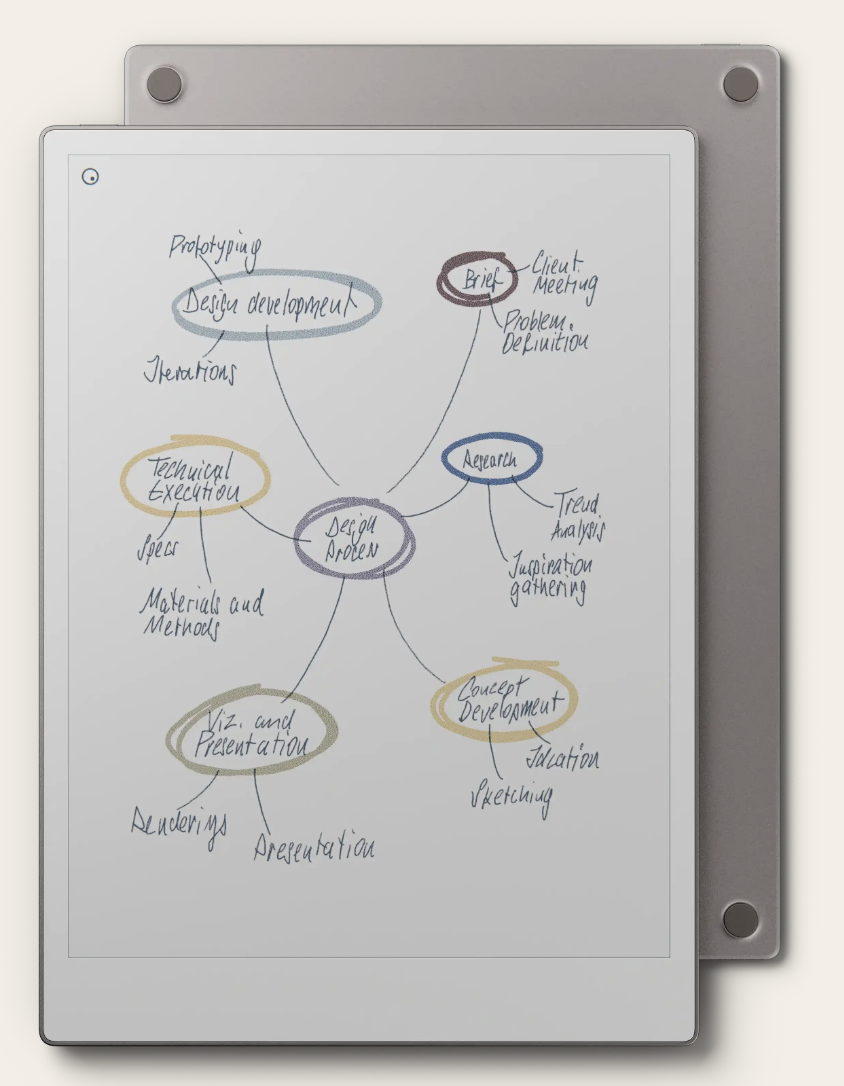 Prototyping
Design development
Iterations
Brief
Client
Meeting
Problem
Definition
Technical
Execution
Specs
Materials and
Methods
Research
Trend
Analysis
Inspiration
gathering
Design
Process
Viz. and
Presentation
Renderings
Presentation
Concept
Development
Ideation
Sketching